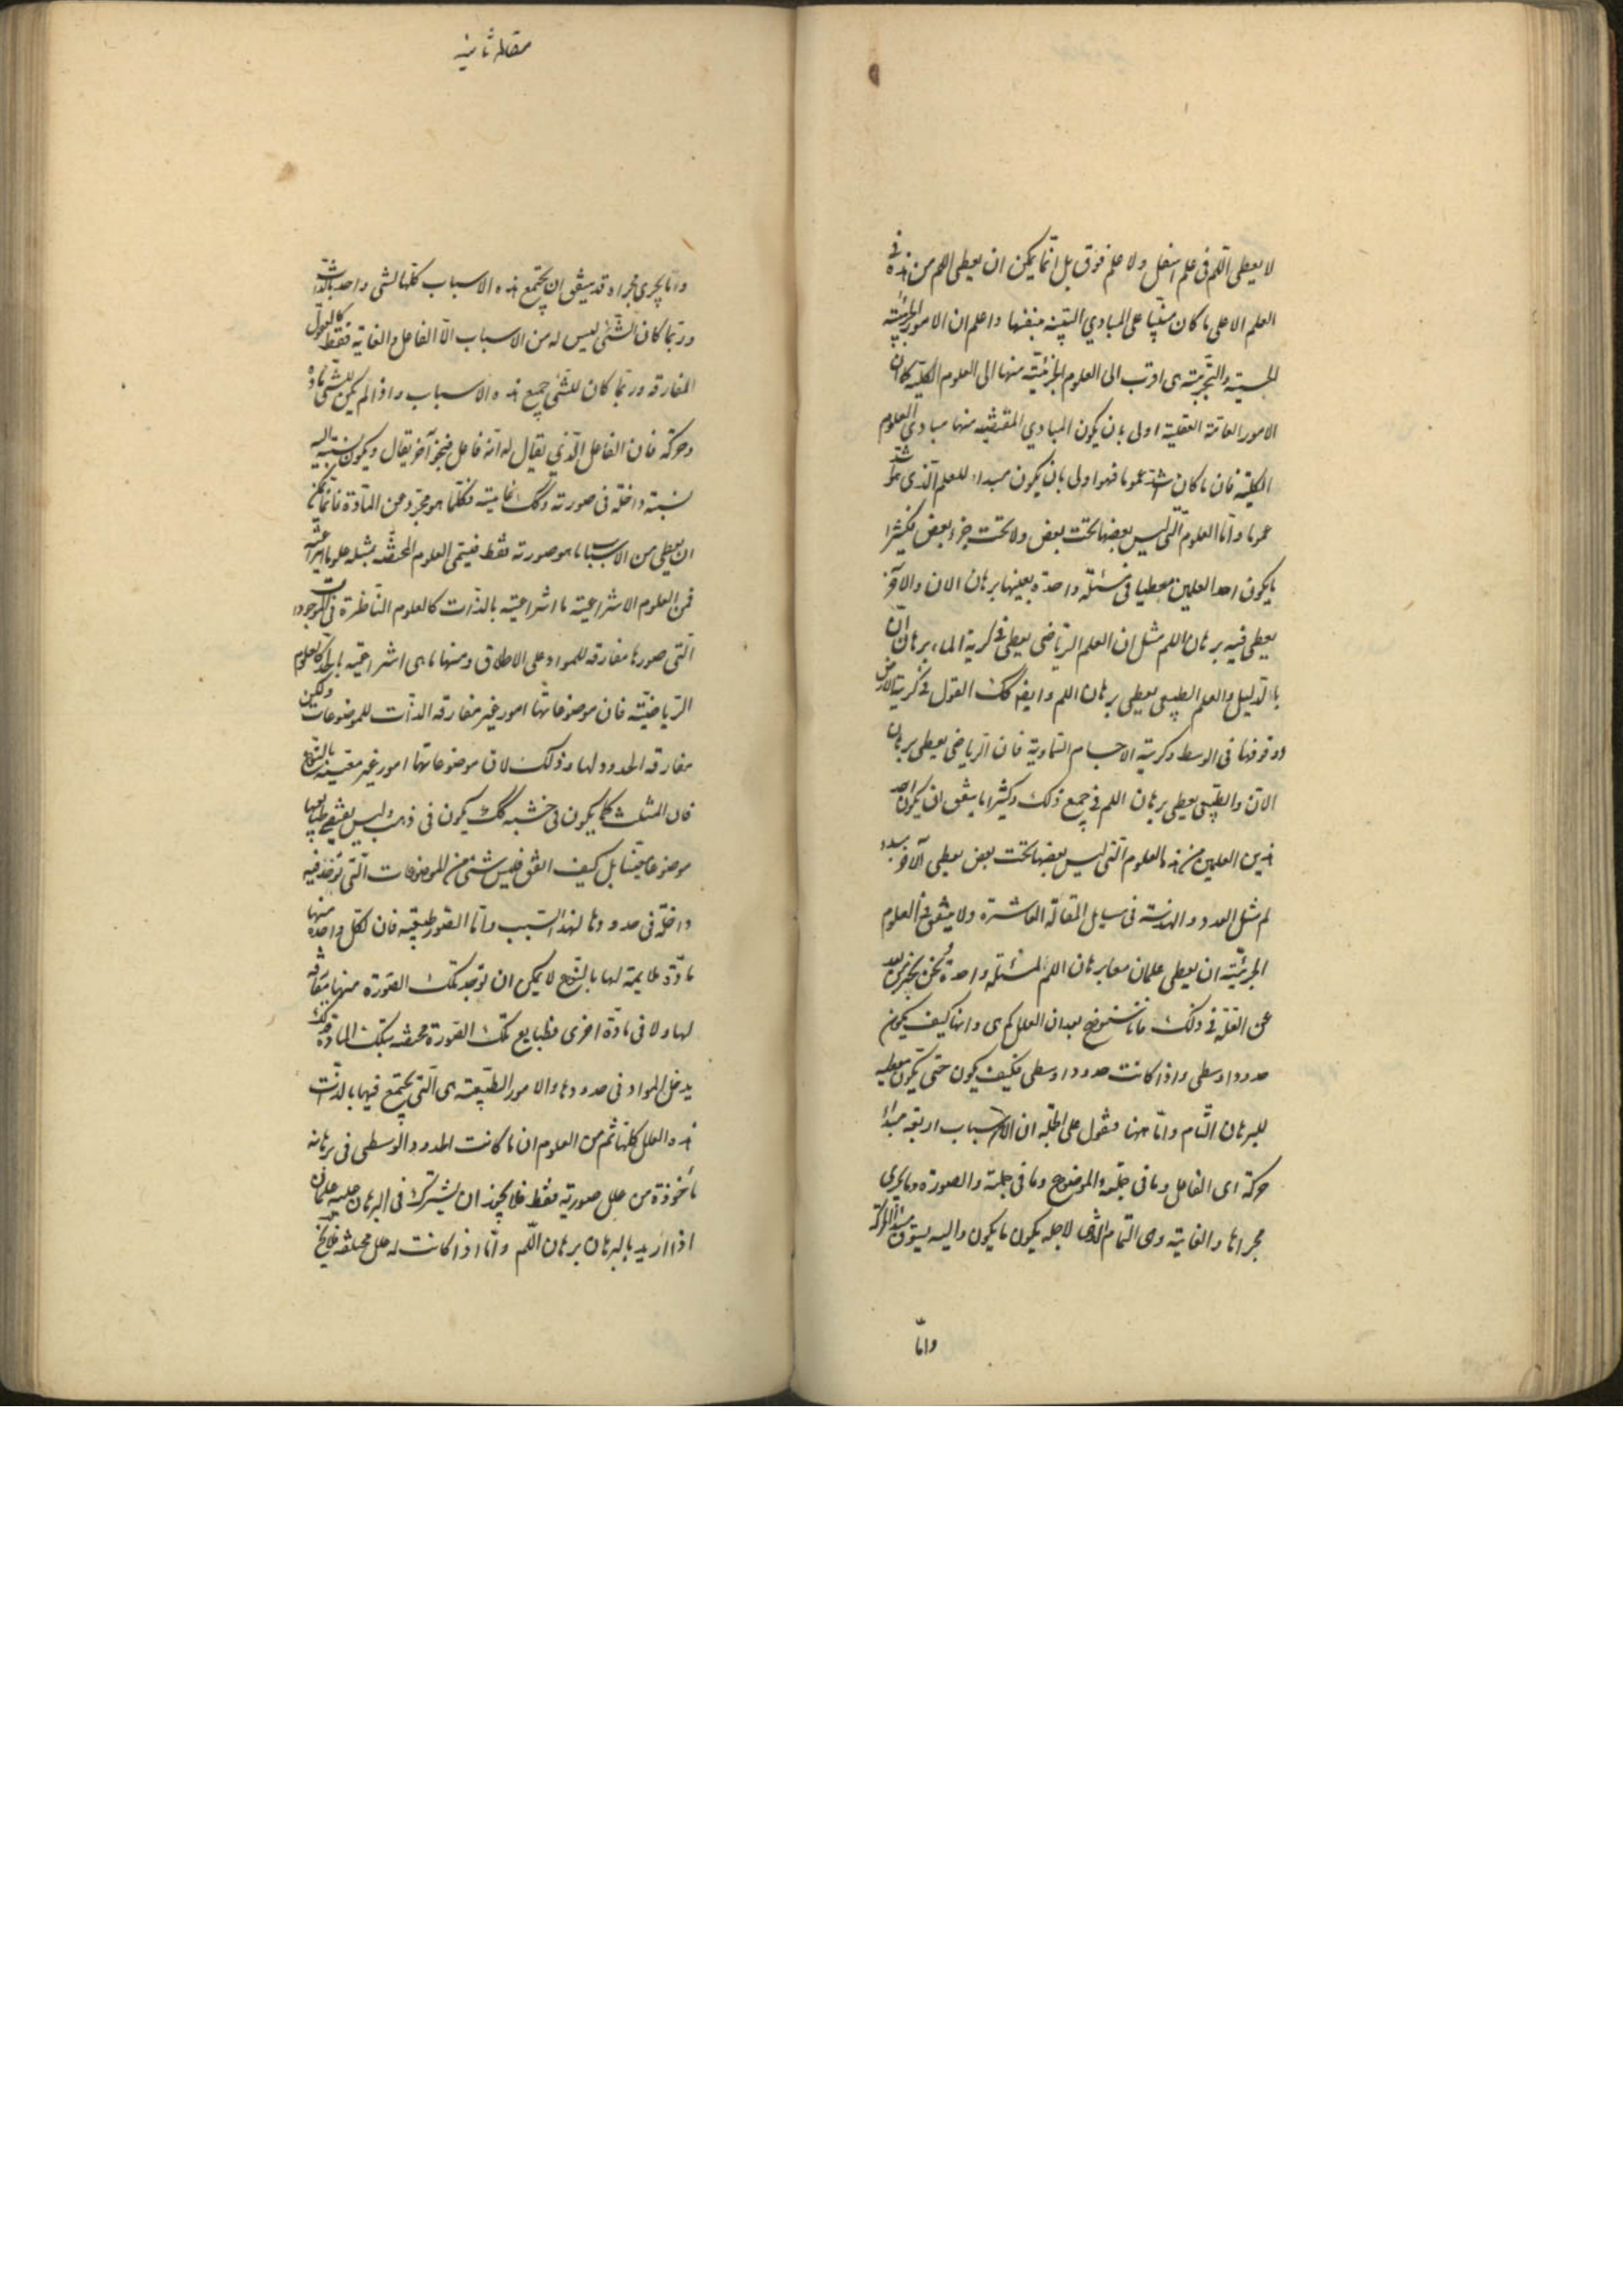 لا يعطى اللم فى علم اسفل ولا علم فوق بل انما يمكن ان يعطى اللم من هذه فى
العلم الاعلى ما كان مبنيا على المبادي البينة بنفسها واعلم ان الامور الجزئية
الحسية والتجربية هى اقرب الى العلوم الجزئية منها الى العلوم الكلية كما ان
الامور العامة العقلية اولى بان يكون المبادي المقتضبة منها مبادى العلوم
الكلية فان ما كان اشد عموما فهو اولى بان يكون مبداء للعلم الذى هو اشد
عموما واما العلوم التى ليس بعضها تحت بعض ولا تحت جزء بعض فكثيرا
ما يكون احد العلمين معطيا فى مسئلة واحدة بعينها برهان الان والاخر
يعطى فيه برهان اللم مثل ان العلم الرياضى يعطى فى كرية الماء برهان ان
بالدليل والعلم الطبيعى يعطى برهان اللم وايضا كك القول فى كرية الارض
ووقوفها فى الوسط وكرية الاجسام السماوية فان الرياضى يعطى برهان
الان والطبيعى يعطى برهان اللم فى جميع ذلك وكثيرا ما يتفق ان يكون احد
هذين العلمين من هذه العلوم التى ليس بعضها تحت بعض يعطى الاخر مبدء
لم مثل العدد والهندسة فى مسايل المقالة العاشرة ولا يتفق فى العلوم
الجزئية ان يعطى علمان معا برهان اللم لمسئلة واحدة ونحن نخبر من بعد
عن العلة فى ذلك فانا سنوضح بعد ان العلل كم هى وانها كيف يكون
حدودا وسطى واذا كانت حدودا وسطى فكيف يكون حتى تكون معطيه
للبرهان التام واما ههنا فنقول على الجملة ان الاسباب اربعة مبداء
حركة اى الفاعل وما فى جملته والموضوع وما فى جملته والصورة وما يجرى
مجراها والغاية وهى التمام الذى لاجله يكون ما يكون واليه يسوق مبدأ الحركة
واما
مقاله ثانيه
وما يجرى مجراه قد يتفق ان يجتمع هذه الاسباب كلها لشى واحد بالذات
وربما كان الشئ ليس له من الاسباب الا الفاعل والغاية فقط كالعقول
المفارقه وربما كان للشئ جميع هذه الاسباب واذا لم يكن للشى مادة
وحركة فان الفاعل الذي يقال له انه فاعل فبنحو آخر يقال ويكون نسبته اليه
نسبة داخلة فى صورته وكك غايته فكلما هو مجرد عن المادة فانما يمكن
ان يعطى من الاسباب ما هو صورته فقط فيسمى العلوم المختصة بمثله علوما انتزاعية
فمن العلوم الانتزاعية ما انتزاعية بالذات كالعلوم الناظرة فى الموجودات
التى صورها مفارقه للمواد على الاطلاق ومنها ما هى انتزاعية بالحد كالعلوم
الرياضية فان موضوعاتها امور غير مفارقه الذات للموضوعات ولكن
مفارقه الحدود لها وذلك لان موضوعاتها امور غير معينة بالنوع
فان المثلث كما يكون فى خشبه كك يكون فى ذهب وليس يقتضى طبايعها
موضوعا معينا بل كيف اتفق فليس شئ من الموضوعات التى توخذ فيه
داخلة فى حدودها لهذا السبب واما الصور الطبيعيه فان لكل واحدة منها
مادة ملايمة لها بالنوع لا يمكن ان توجد تلك الصورة منها مفارقه
لها ولا فى مادة اخرى فطبايع تلك الصورة مختصه بتلك المادة فلذلك
يدخل المواد فى حدودها والامور الطبيعية هى التى يجتمع فيها بالذات
هذه العلل كلها ثم من العلوم ان ما كانت الحدود الوسطى فى برهانه
ماخوذة من علل صورية فقط فلا يجوز ان يشترك فى البرهان عليه علمان
اذا اريد بالبرهان برهان اللم واما اذا كانت له علل مختلفة